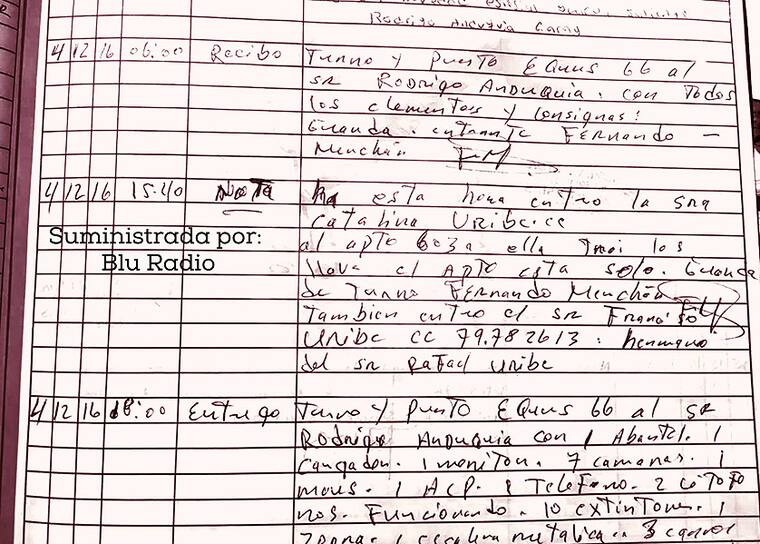 Rodrigo Anduquia Garay
4 12 16 06:00 Recibo Turno y Puesto EQuus 66 al
sr Rodrigo Anduquia. con Todos
los elementos y consignas:
Guarda. entrante FERnando -
Menchán FM
4 12 16 15:40 Nota ha esta hora entro la sra
catalina Uribe cc
Suministrada por:
Blu Radio
al apto 603a ella trai los
llava el Apto esta solo. Guarda
de Turno FERnando Menchán
Tambien entro el sr Francisco
Uribe cc 79.782613: hermano
del sr Rafael uribe
4 12 16 18:00 Entrego Turno y Puesto EQuus 66 al sr
Rodrigo Anduquia con 1 Abantel. 1
Cargador. 1 monitor. 7 camaras. 1
mous. 1 ACP. 1 Telefono. 2 citofo
nos. Funcionando. 10 extintores. 1
1 escalera metalica.